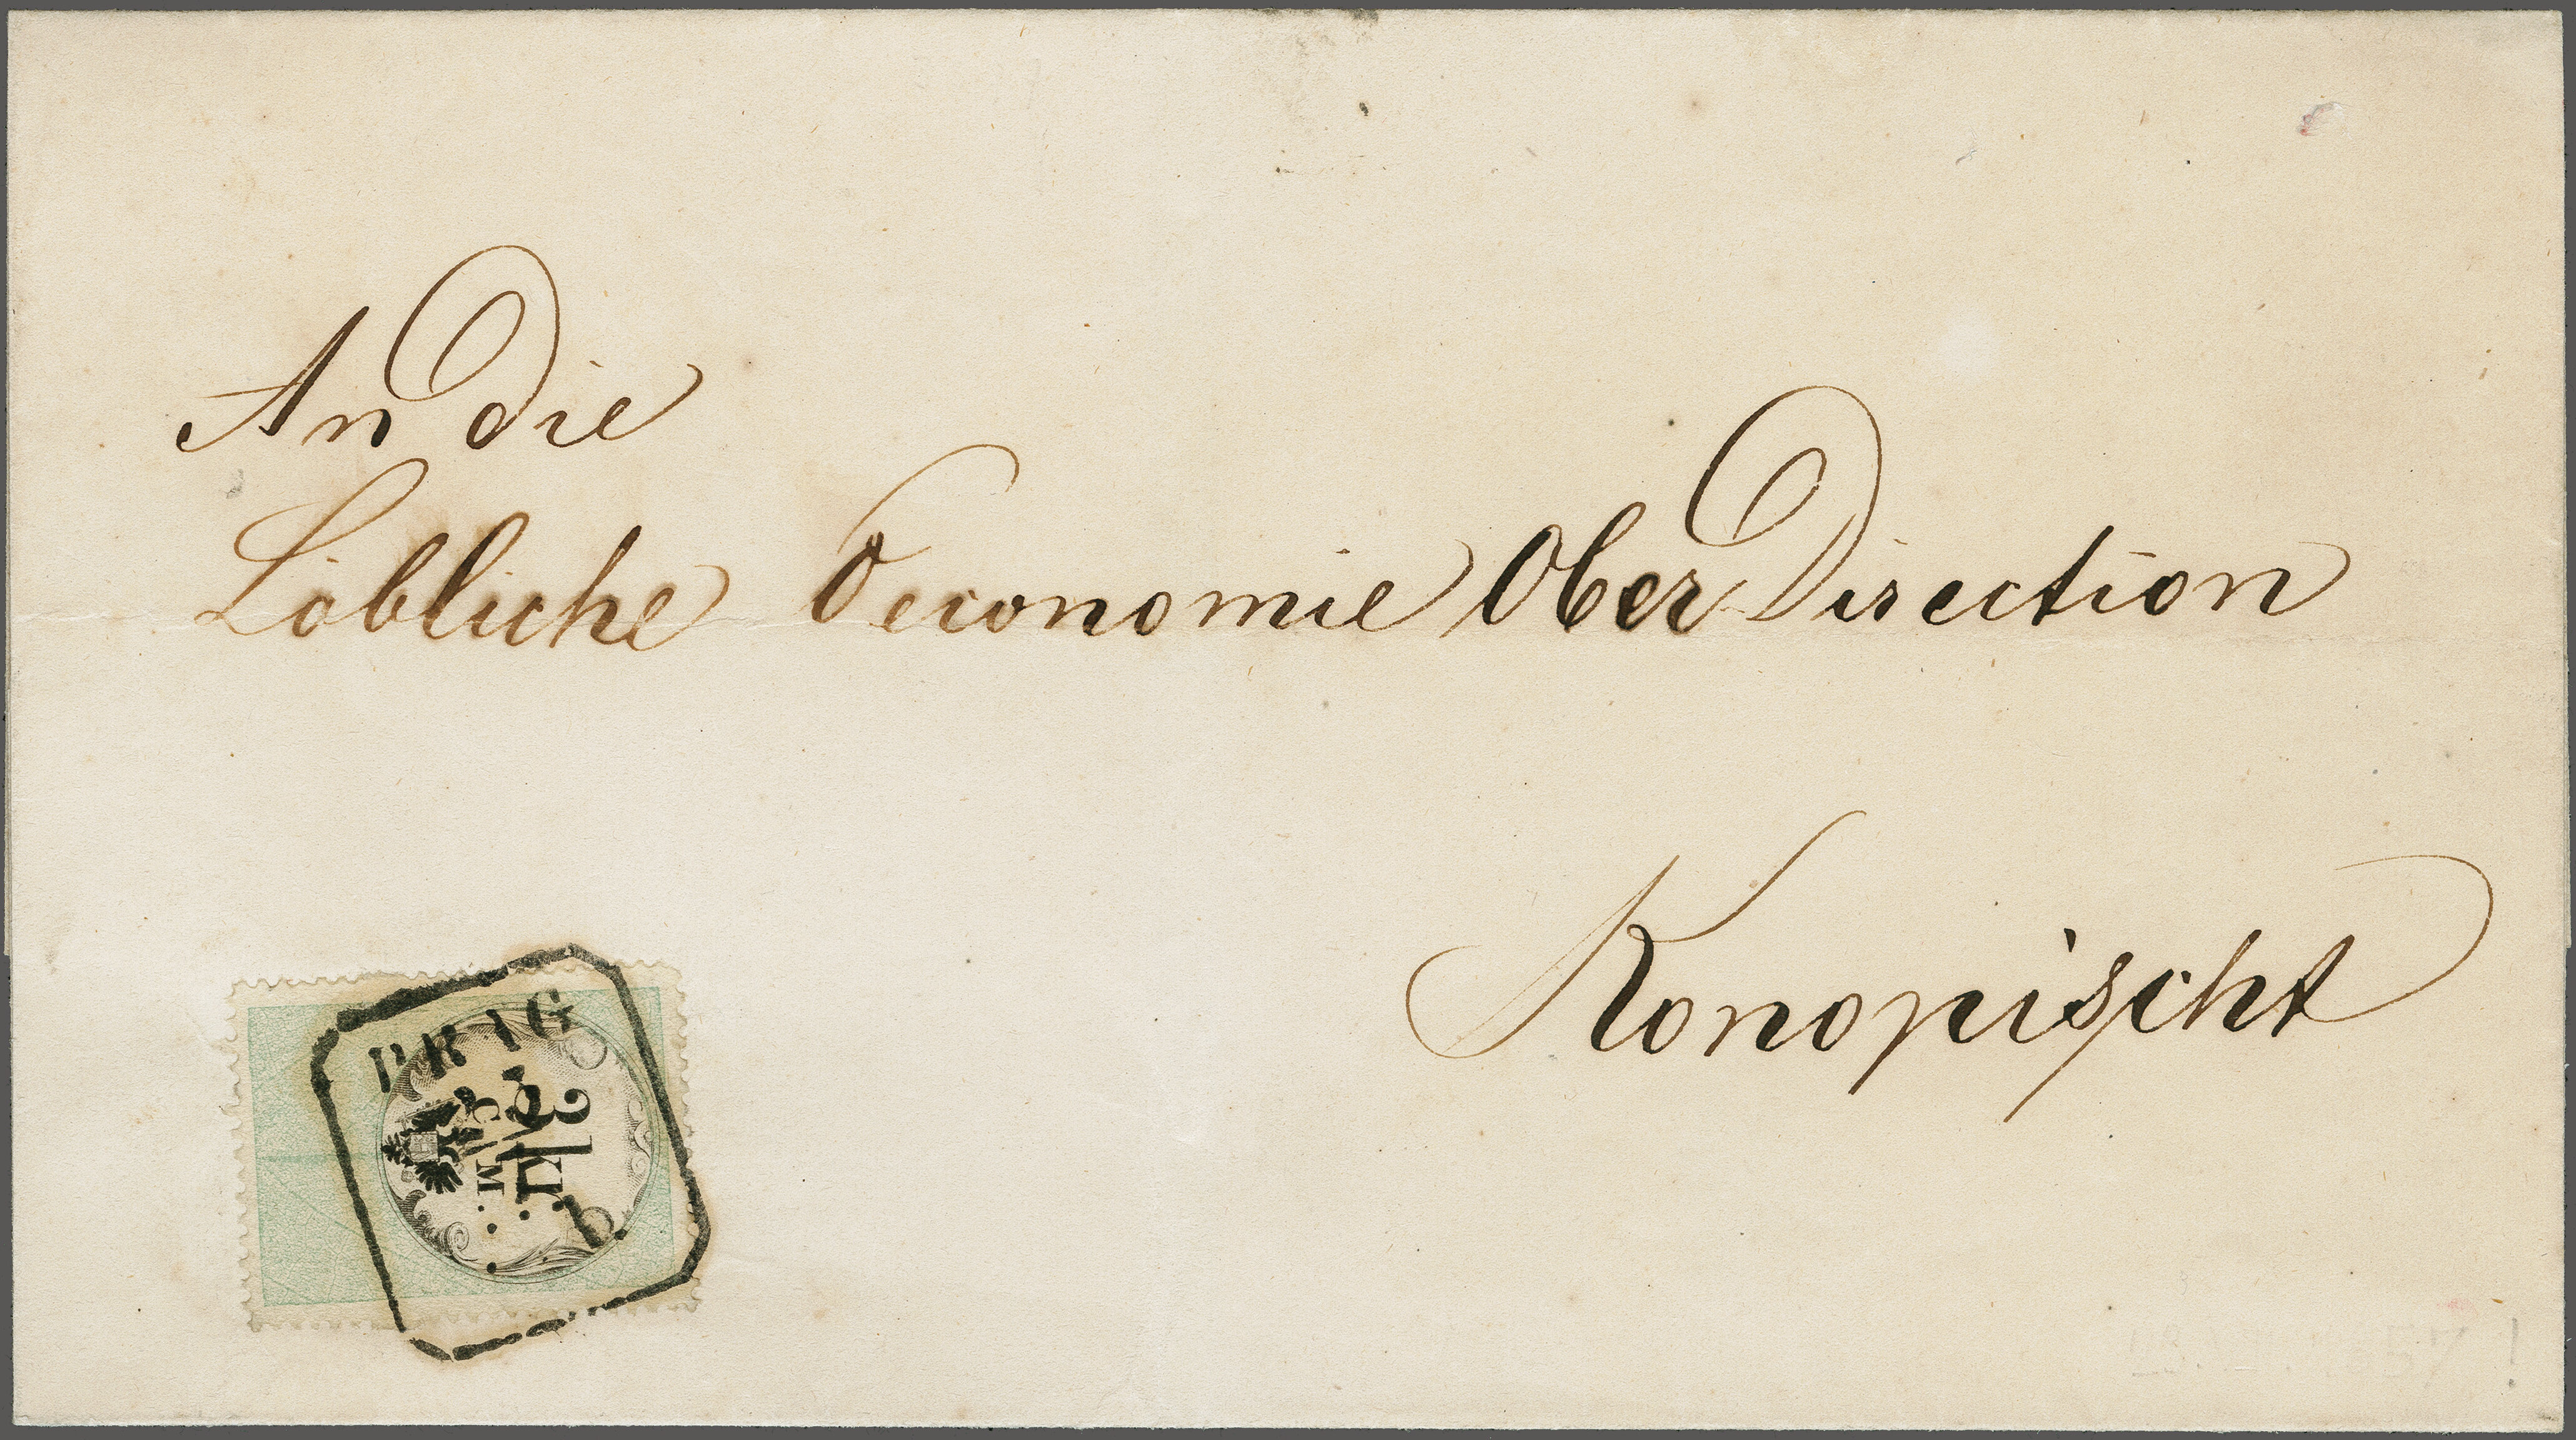 An die
Löbliche Oeconomie Ober Direction
Konopischt
PRAG
3 kr.
C. M.